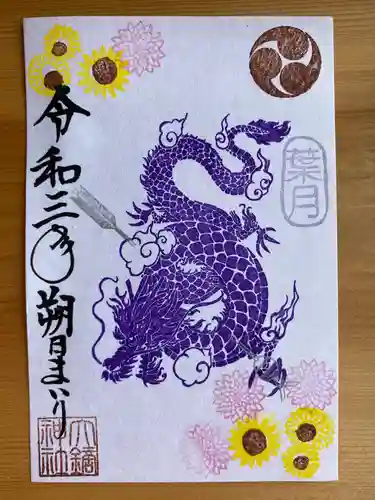 令和三年 朔日まいり
葉月
大鏑
神社